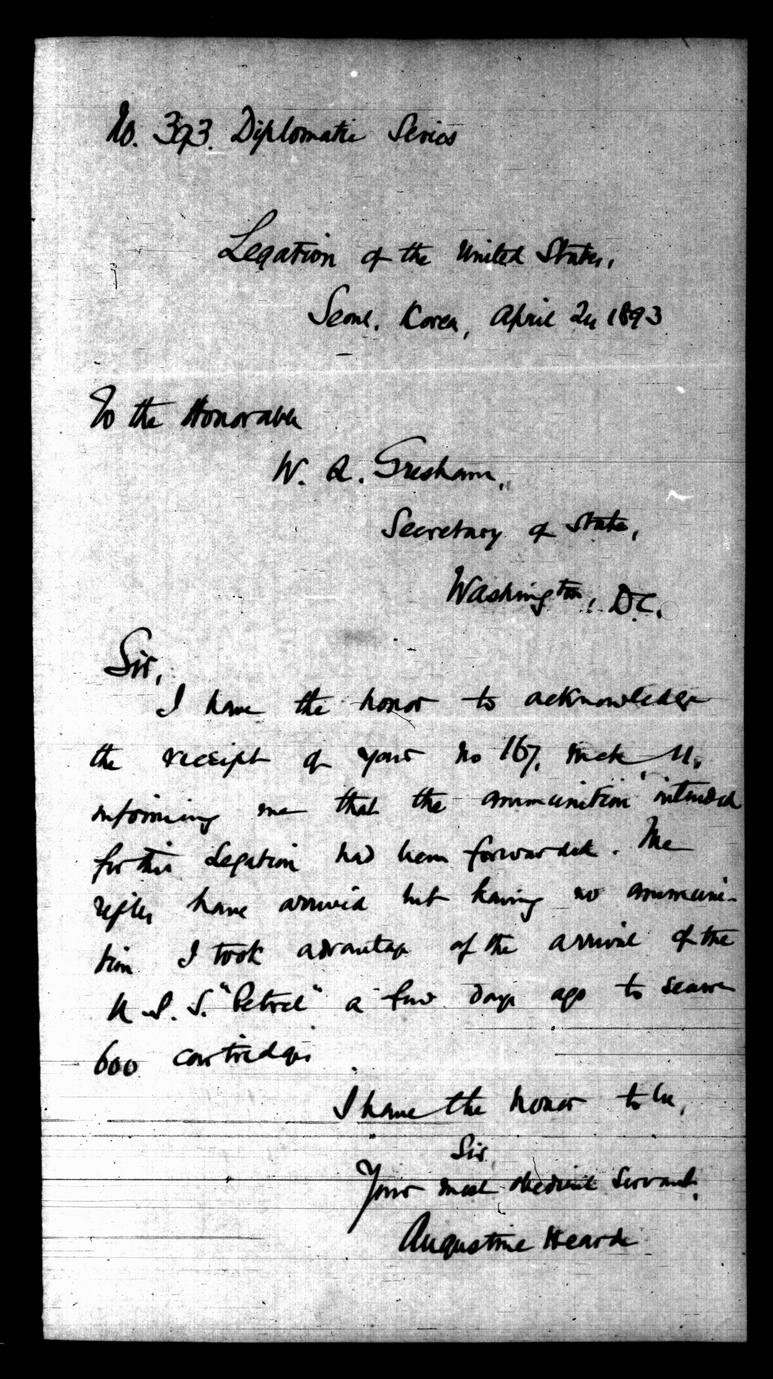 No. 393. Diplomatic Series
Legation of the United States,
Seoul, Korea, April 24 1893
To the Honorable
W. Q. Gresham,
Secretary of State,
Washington, D.C.
Sir,
I have the honor to acknowledge
the receipt of your No 167, Mch 11,
informing me that the ammunition intended
for this Legation had been forwarded. The
rifles have arrived but having no ammuni-
tion I took advantage of the arrival of the
U. S. S. "Petrel" a few days ago to secure
600 cartridges
I have the honor to be,
Sir,
Your most obedient Servant,
Augustine Heard